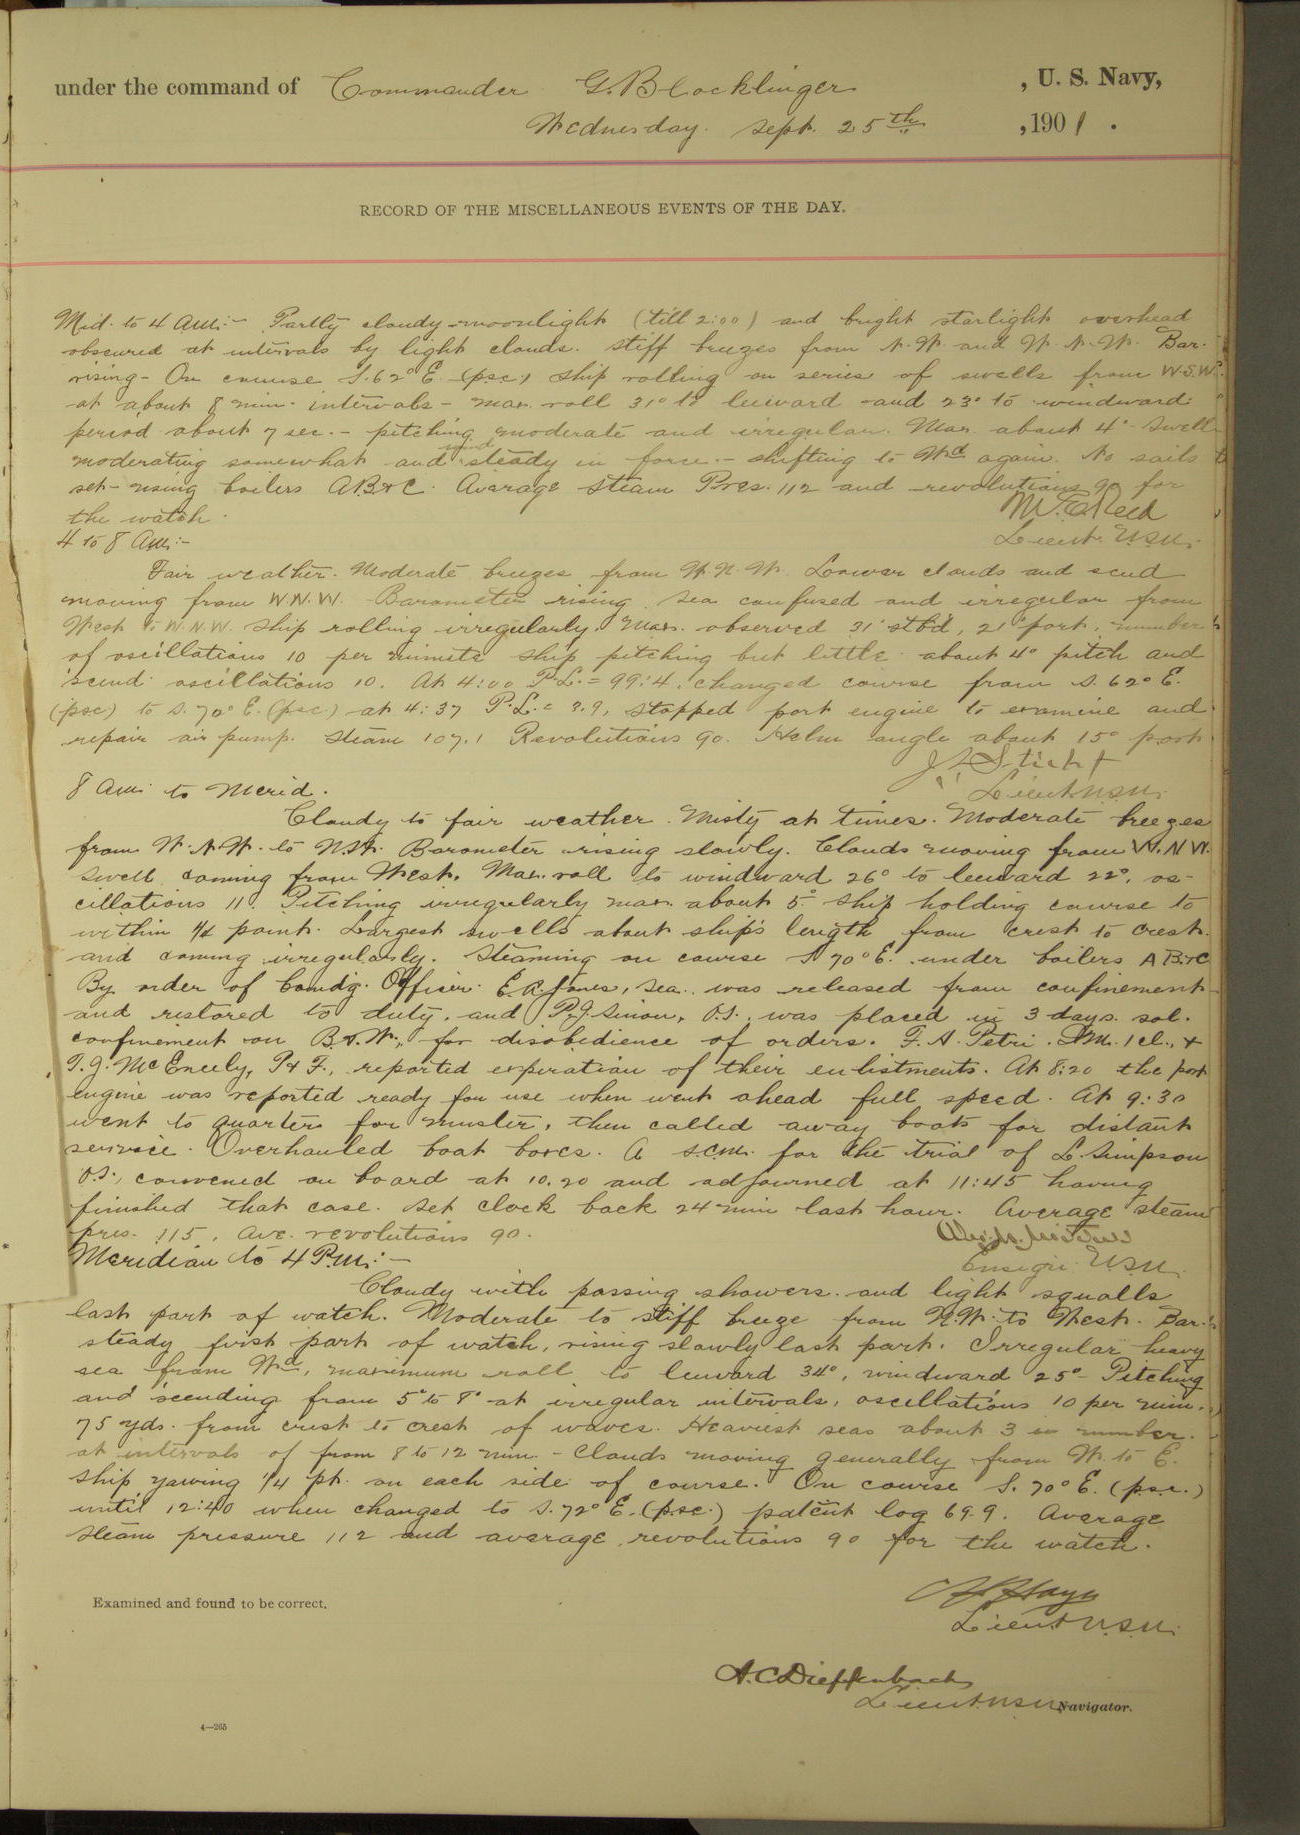 under the command of Commander G. Blocklinger , U. S. Navy,
Wednesday. Sept. 25th , 1901 .
RECORD OF THE MISCELLANEOUS EVENTS OF THE DAY.
Mid. to 4 A.M.:- Partly cloudy - moonlight (till 2:00) and bright starlight overhead
obscured at intervals by light clouds. Stiff breezes from N.W. and W.N.W. Bar.
rising - On course S. 62° E. (p.s.c.) ship rolling on series of swells from W.S.W.
at about 8 min. intervals - max. roll 31° to leeward and 23° to windward
period about 7 sec. - pitching moderate and irregular. Max. about 4° - Swell
moderating somewhat and wind steady in force - shifting to Wd again. No sails
set - using boilers A B & C. Average Steam Pres. 112 and revolutions 90 for
the watch.
M. E. Reed
Lieut. U.S.N.
4 to 8 A.M.:-
Fair weather. Moderate breezes from W.N.W. Lower clouds and scud
moving from W.N.W. Barometer rising. Sea confused and irregular from
West to W.N.W. Ship rolling irregularly. Max. observed 31° stbd, 21° port, number
of oscillations 10 per minute ship pitching but little about 4° pitch and
'scend oscillations 10. At 4:00 P.L. = 99.4. changed course from S. 62° E.
(psc) to S. 70° E. (psc.) at 4:37 P.L. = 3.9, stopped port engine to examine and
repair air pump. Steam 107.1 Revolutions 90. Helm angle about 15° port
Lieut. U.S.N.
8 A.M. to Merid.
Cloudy to fair weather. Misty at times. Moderate breezes
from W.N.W. to N.W. Barometer rising slowly. Clouds moving from W.N.W.
Swell coming from West. Max. roll to windward 26° to leeward 22°, os-
cillations 11. Pitching irregularly max. about 5° Ship holding course to
within 1/4 point. Largest swells about ship's length from crest to crest
and coming irregularly. Steaming on course S 70° E. under boilers A B & C
By order of Comdg. Officer E. R. Jones, Sea. was released from confinement
and restored to duty, and P. J. Simon, O.S., was placed in 3 days sol.
confinement on B. & W., for disobedience of orders. F. A. Petri. 1 cl., &
T. J. McEneely, P & F., reported expiration of their enlistments. At 8:20 the port
engine was reported ready for use when went ahead full speed. At 9:30
went to quarters for muster, then called away boats for distant
service. Overhauled boat boxes. A S.C.M. for the trial of L. Simpson
O.S., convened on board at 10.20 and adjourned at 11:45 having
finished that case. Set clock back 24 min last hour. Average steam
pres. 115, Ave. revolutions 90.
Ensign U.S.N.
Meridian to 4 P.M.:-
Cloudy with passing showers and light squalls
last part of watch. Moderate to stiff breeze from N.W. to West. Bar.
steady first part of watch, rising slowly last part. Irregular heavy
sea from Wd, maximum roll to leeward 34°, windward 25° - Pitching
and 'scending from 5° to 8° at irregular intervals, oscillations 10 per min.
75 yds. from crest to crest of waves. Heaviest seas about 3 in number
at intervals of from 8 to 12 min - Clouds moving generally from W. to E.
Ship yawing 1/4 pt. on each side of course. On course S. 70° E. (p.s.c.)
until 12:40 when changed to S. 72° E. (p.s.c.) patent log 69.9. Average
Steam pressure 112 and average revolutions 90 for the watch.
Lieut U.S.N.
Examined and found to be correct.
A. C. Dieffenbach
Lieut. U.S.N. Navigator.
4—265